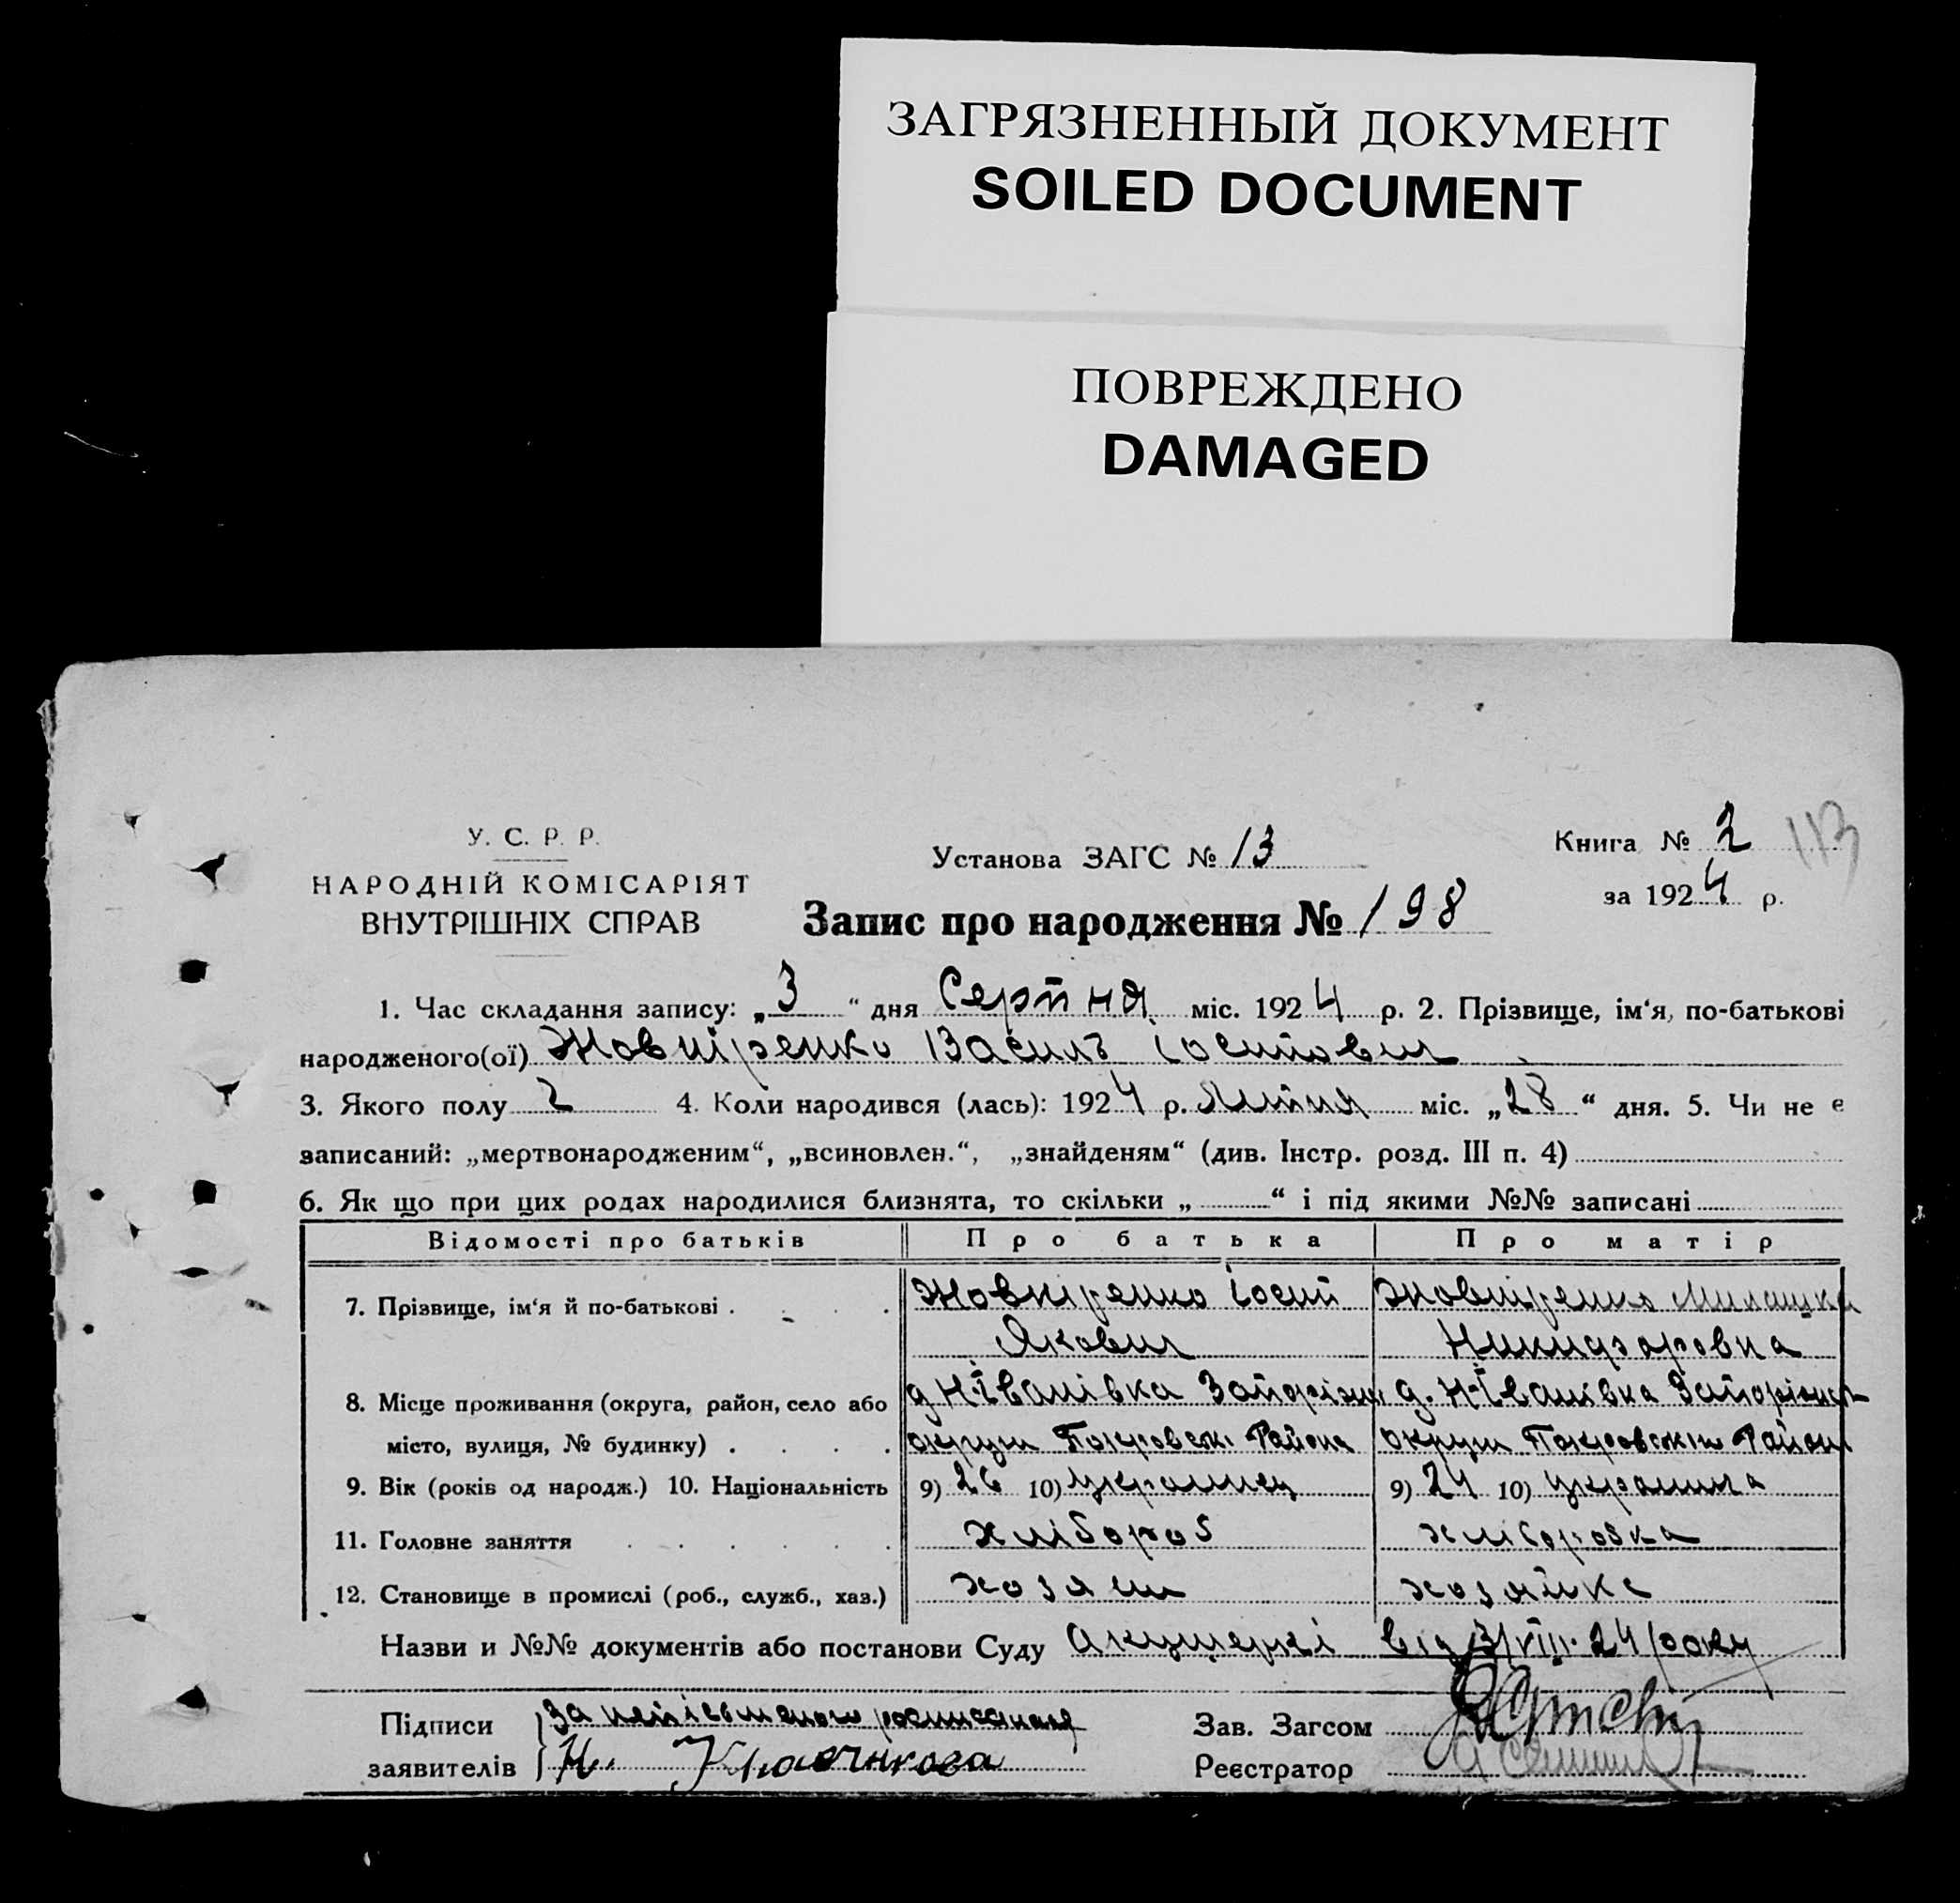 ЗАГРЯЗНЕННЫЙ ДОКУМЕНТ
SOILED DOCUMENT
ПОВРЕЖДЕНО
DAMAGED
У. С. Р. Р.
НАРОДНІЙ КОМІСАРІЯТ
ВНУТРІШНІХ СПРАВ
Установа ЗАГС № 13
Книга № 2
113
за 1924 р.
Запис про народження № 198
1. Час складання запису: „3“ дня Серпня міс. 1924 р. 2. Прізвище, ім‘я, по-батькові
народженого(ої) Жовніренко Василь Іосипович
3. Якого полу 2 4. Коли народився (лась): 1924 р. Липня міс. „28“ дня. 5. Чи не є
записаний: „мертвонародженим“, „всиновлен.“, „знайденям“ (див. Інстр. розд. III п. 4)
6. Як що при цих родах народилися близнята, то скільки „ “ і під якими №№ записані
Відомості про батьків Про батька Про матір
7. Прізвище, ім‘я й по-батькові . . . Жовніренко Іосип Жовніренко
Якович Никифоровна
8. Місце проживання (округа, район, село або д Н-Іванівка д. Н-Іванівка
місто, вулиця, № будинку) . . . . округи Покровськ Района округи Району
9. Вік (років од народж.) 10. Національність 9) 26 10) Украинец 9) 24 10) Украинка
11. Головне заняття . . . . . . хлібороб хліборобка
12. Становище в промислі (роб., служб., хаз.) хозяин хозяйка
Назви и №№ документів або постанови Суду Акушеркі від 3/VIII-24 року
Підписи за непісьменого Зав. Загсом
заявителів Н. Реєстратор